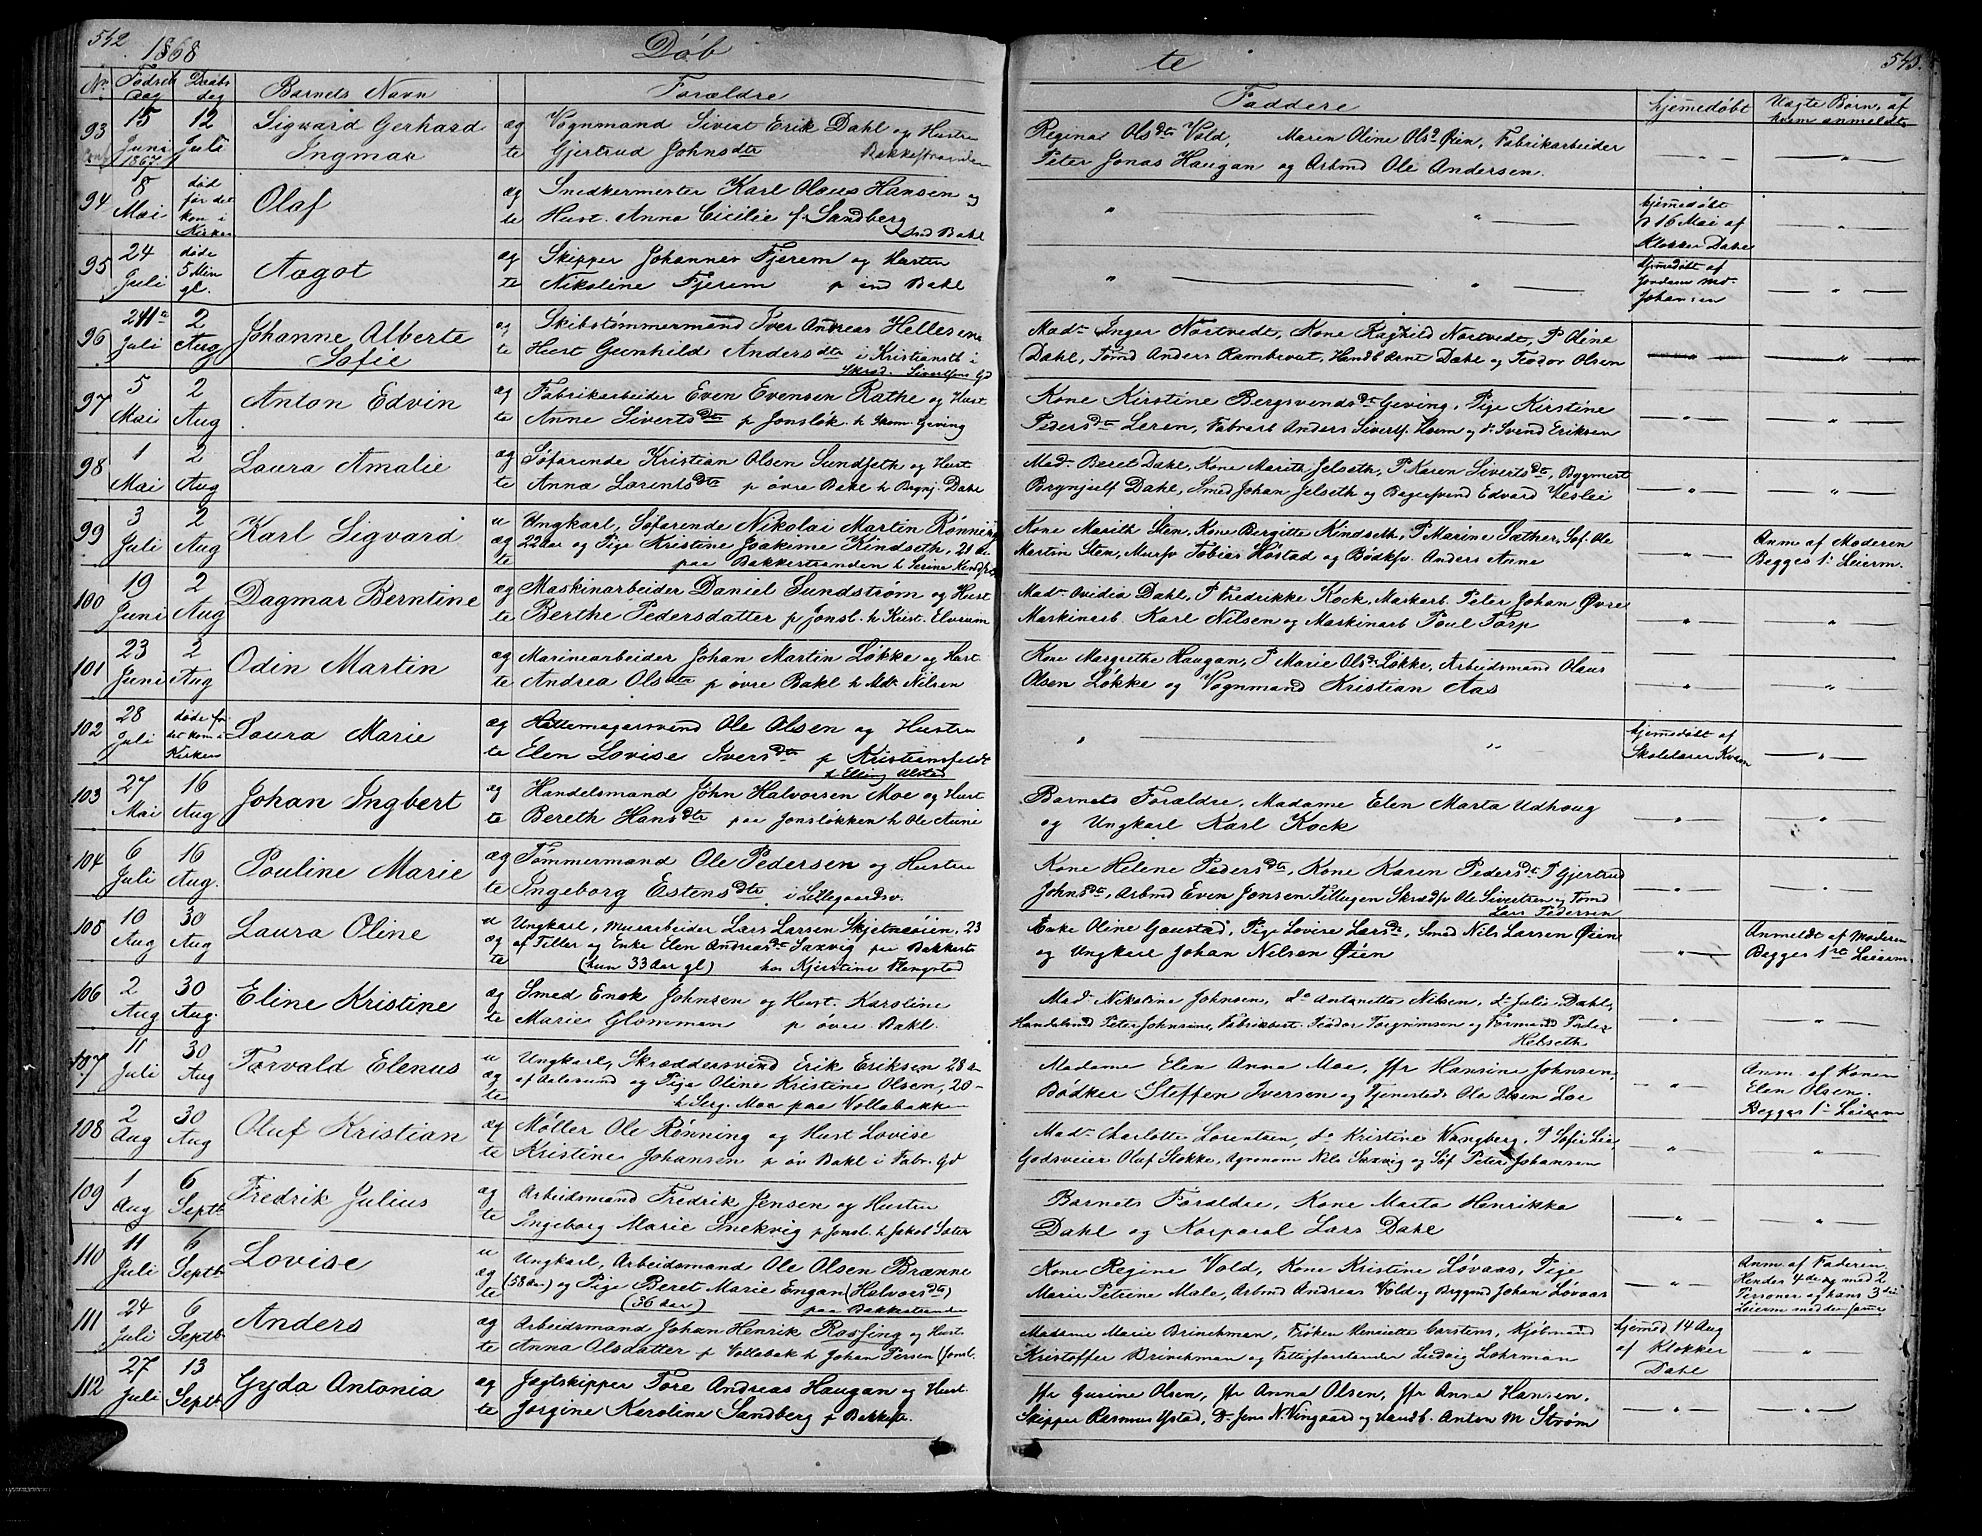 542
1868
Døb
No
Fødsels Dag
Daabs dag
Barnets Navn
Forældre
93
15 Juni 1867
12 Juli
Sigvard Gerhard
Ingmar
ægte
Vognmand Sivert Erik Dahl og Hustru
Gjertrud Johnsdtr Bakkestranden
94
8 Mai
død før det kom i Kirken
Olaf
ægte
Snedkermester Karl Olaus Hansen og
Hust. Anna Cicilie f. Sandberg
Ind Bakl
95
24 Juli
døde 5 Min gl.
Aagot
ægte
Skipper Johannes Fjerem og Hustru
Nikoline Fjerem p ind Bakl
96
Juli
2 Aug
Johanne Alberte
Sofie
ægte
Skibstømmermand Iver Andreas Hellesen
Hust Gunhild Andersdtr i Kristiansth i
97
5 Mai
2 Aug
Anton Edvin
ægte
Fabrikarbeider Even Evensen Rathe og Hust
Anne Sivertsdtr p Jonsløk. h Skom. Geving
98
1 Mai
2 Aug
Laura Amalie
ægte
Søfarende Kristian Olsen Sundseth og Hust
Anna Lorentsdtr p øvre Bakl h Brynj. Dahl
99
3 Juli
2 Aug
Karl Sigvard
uægte
Ungkarl, Søfarende Nikolai Martin Rønning
22 aar og Pige Kristine Joakime Kindseth, 21 Ar
paa Bakkestranden h Serine Kindseth
100
19 Juni
2 Aug
Dagmar Berntine
ægte
Maskinarbeider Daniel Sundstrøm og Hust
Berthe Pedersdatter p Jonsl. h Kust. Elvrum
101
23 Juni
2 Aug
Odin Martin
ægte
Marinearbeider Johan Martin Løkke og Hust.
Andrea Olsdtr p øvre Bakl h Md. Nilsen
102
28 Juli
døde før det kom i Kirken
Laura Marie
ægte
Hattemagersvend Ole Olsen og Hustru
Elen Lovise Iversdtr p Kristiansfeldt
h Elling Ulstad
103
27 Mai
16 Aug
Johan Ingbert
ægte
Handelsmand John Halvorsen Moe og Hust
Bereth Hansdtr paa Jonsløkken h Ole Aune
104
6 Juli
16 Aug.
Pouline Marie
ægte
Tømmermand Ole Pedersen og Hustru
Ingeborg Estensdtr i Lillegaardsv.
105
10 Aug
30 Aug
Laura Oline
uægte
Ungkarl, Murarbeider Lars Larsen Skjetnesøien, 23
af Tiller og Enke Elen Andreasdtr Saxvig paa Bakkestr
(hun 33 Aar gl) hos Kjerstine Flengstad
106
2 Aug
30 Aug.
Eline Kristine
ægte
Smed Enok Johnsen og Hust. Karoline
Marie Glommen p øvre Bakl.
107
11 Juli
30 Aug
Torvald Elenus
uægte
Ungkarl, Skræddersvend Erik Eriksen 28 a
af Aalesund og Pige Oline Kristine Olsen, 20-
h Serg. Moe paa Vollabakken
108
2 Aug
30 Aug
Oluf Kristian
ægte
Møller Ole Rønning og Hust Lovise
Kristine Johansen p øv Bakl i Fabr. Gd
109
1 Aug
6 Septb
Fredrik Julius
ægte
Arbeidsmand Fredrik Jensen og Hustru
Ingeborg Marie Snekvig p Jonsl. h Jakob Sæter
110
11 Juli
6 Septb
Lovise
uægte
Ungkarl, Arbeidsmand Ole Olsen Brænne
(58 Aar) og Pige Beret Marie Engan (Halvorsdtr)
(36 Aar) paa Bakkestranden
111
24 Juli
6 Septb
Anders
ægte
Arbeidsmand Johan Henrik Rossing og Hust.
Anna Olsdatter p Vollabak h Johan Persen (Jonsl.
112
27 Juli
13 Septb
Gyda Antonia
ægte
Jagtskipper Tore Andreas Haugan og Hust.
Jorgine Karoline Sandberg p Bakkestr.
te
543.
Faddere
hjemedøbt
Uægte Børn, af hvem anmeldte
Regina Olsdtr Vold, Maren Oline Olsd Øien, Fabrikarbeider
Peter Jonas Haugan og Arbmd Ole Andersen.
hjemedøbt
d 16 Mai af
Klokker Dahl
hjemedøbt af
Jordem Md.
Johansen
Mad. Inger Nortvedt, Kone Raghild Nortvedt, P Oline
Dahl, Tømd Anders Rambevat, Handl Arnt Dahl og Teodor Olsen
Kone Kirstine Bergsvendsdtr Geving, Pige Kirstine
Pedersdtr Leren, Fabrarb Anders Sivertsen Hoem og do Svend Eriksen
Mad. Beret Dahl, Kone Marith Jelseth, P Karen Sivertsdtr, Bygmest
Brynjulf Dahl, Smed Johan Jelseth og Bagersvend Edvard Veslei
Kone Marith Sten, Kone Bergitte Kindseth, P Marine Sæther, Søf. Ole
Martin Sten, Mursv Tobias Høstad og Bødksv. Anders Aune
Anm af Moderen
Begges 1ste Leierm.
Mad. Ovidia Dahl, P Fredrikke Kock, Maskarb. Peter Johan Øvre
Maskinarb Karl Nilsen og Maskinarb Poul Torp
Kone Margrethe Haugan, P Marie Olsdtr Løkke, Arbeidsmand Olaus
Olsen Løkke og Vognmand Kristian Aas
hjemedøbt af
Skolelærer Kvæn
Barnets Forældre, Madame Elen Marta Udhoug
og Ungkarl Karl Kock
Kone Helene Pedersdtr, Kone Karen Pedersdtr P Gjertrud
Johnsdtr, Arbmd Even Jonsen Tillugen Skrædsv Ole Sivertsen og Tømd
Lars Pedersen
Enke Oline Gaustad, Pige Lovise Larsdtr, Smed Nils Larsen Øien
og Ungkarl Johan Nilsen Øien
Anmeldt af Moderen
Begges 1ste Leierm.
Mad. Nikoline Johnsen, do Antonette Nilsen, do Julie Dahl,
Handelsmd Peter Johnsen, Fabrikbest. Teodor Torgrimsen og Formand Peder
Hebseth
Madame Elen Anna Moe, Jfr Hansine Johnsen,
Bødker Steffen Iversen og Tjenestedr Ole Olsen Loe
Anm. af Konen
Elen Olsen.
Begges 1ste Leierm
Mad. Charlotte Lorentsen, do Kristine Vangberg, P Sofie Lie,
Godseier Oluf Stokke, Agronom Nils Saxvig og Søf Peter Johansen
Barnets Forældre, Kone Marta Henrikka
Dahl og Korporal Lars Dahl
Kone Regine Vold, Kone Kristine Løvaas, Pige
Marie Petrine Male, Arbmd Andreas Vold og Bygmd Johan Løvaas
Anm. af Faderen
Hendes 4de og med 2
Personer og hans 3die
Leierm med den samme
Madame Marie Brinchman, Frøken Henriette Carstens, Kjøbmand
Kristoffer Brinchman og Fattigforstander Ludvig Lohrman
hjemed. 14 Aug
af Klokker
Dahl
Jfr Gurine Olsen, Jfr Anna Olsen, Jfr Anna Hansen,
Skipper Rasmus Ystad, Do Jens N. Vingaard og Handb. Anton M Strøm